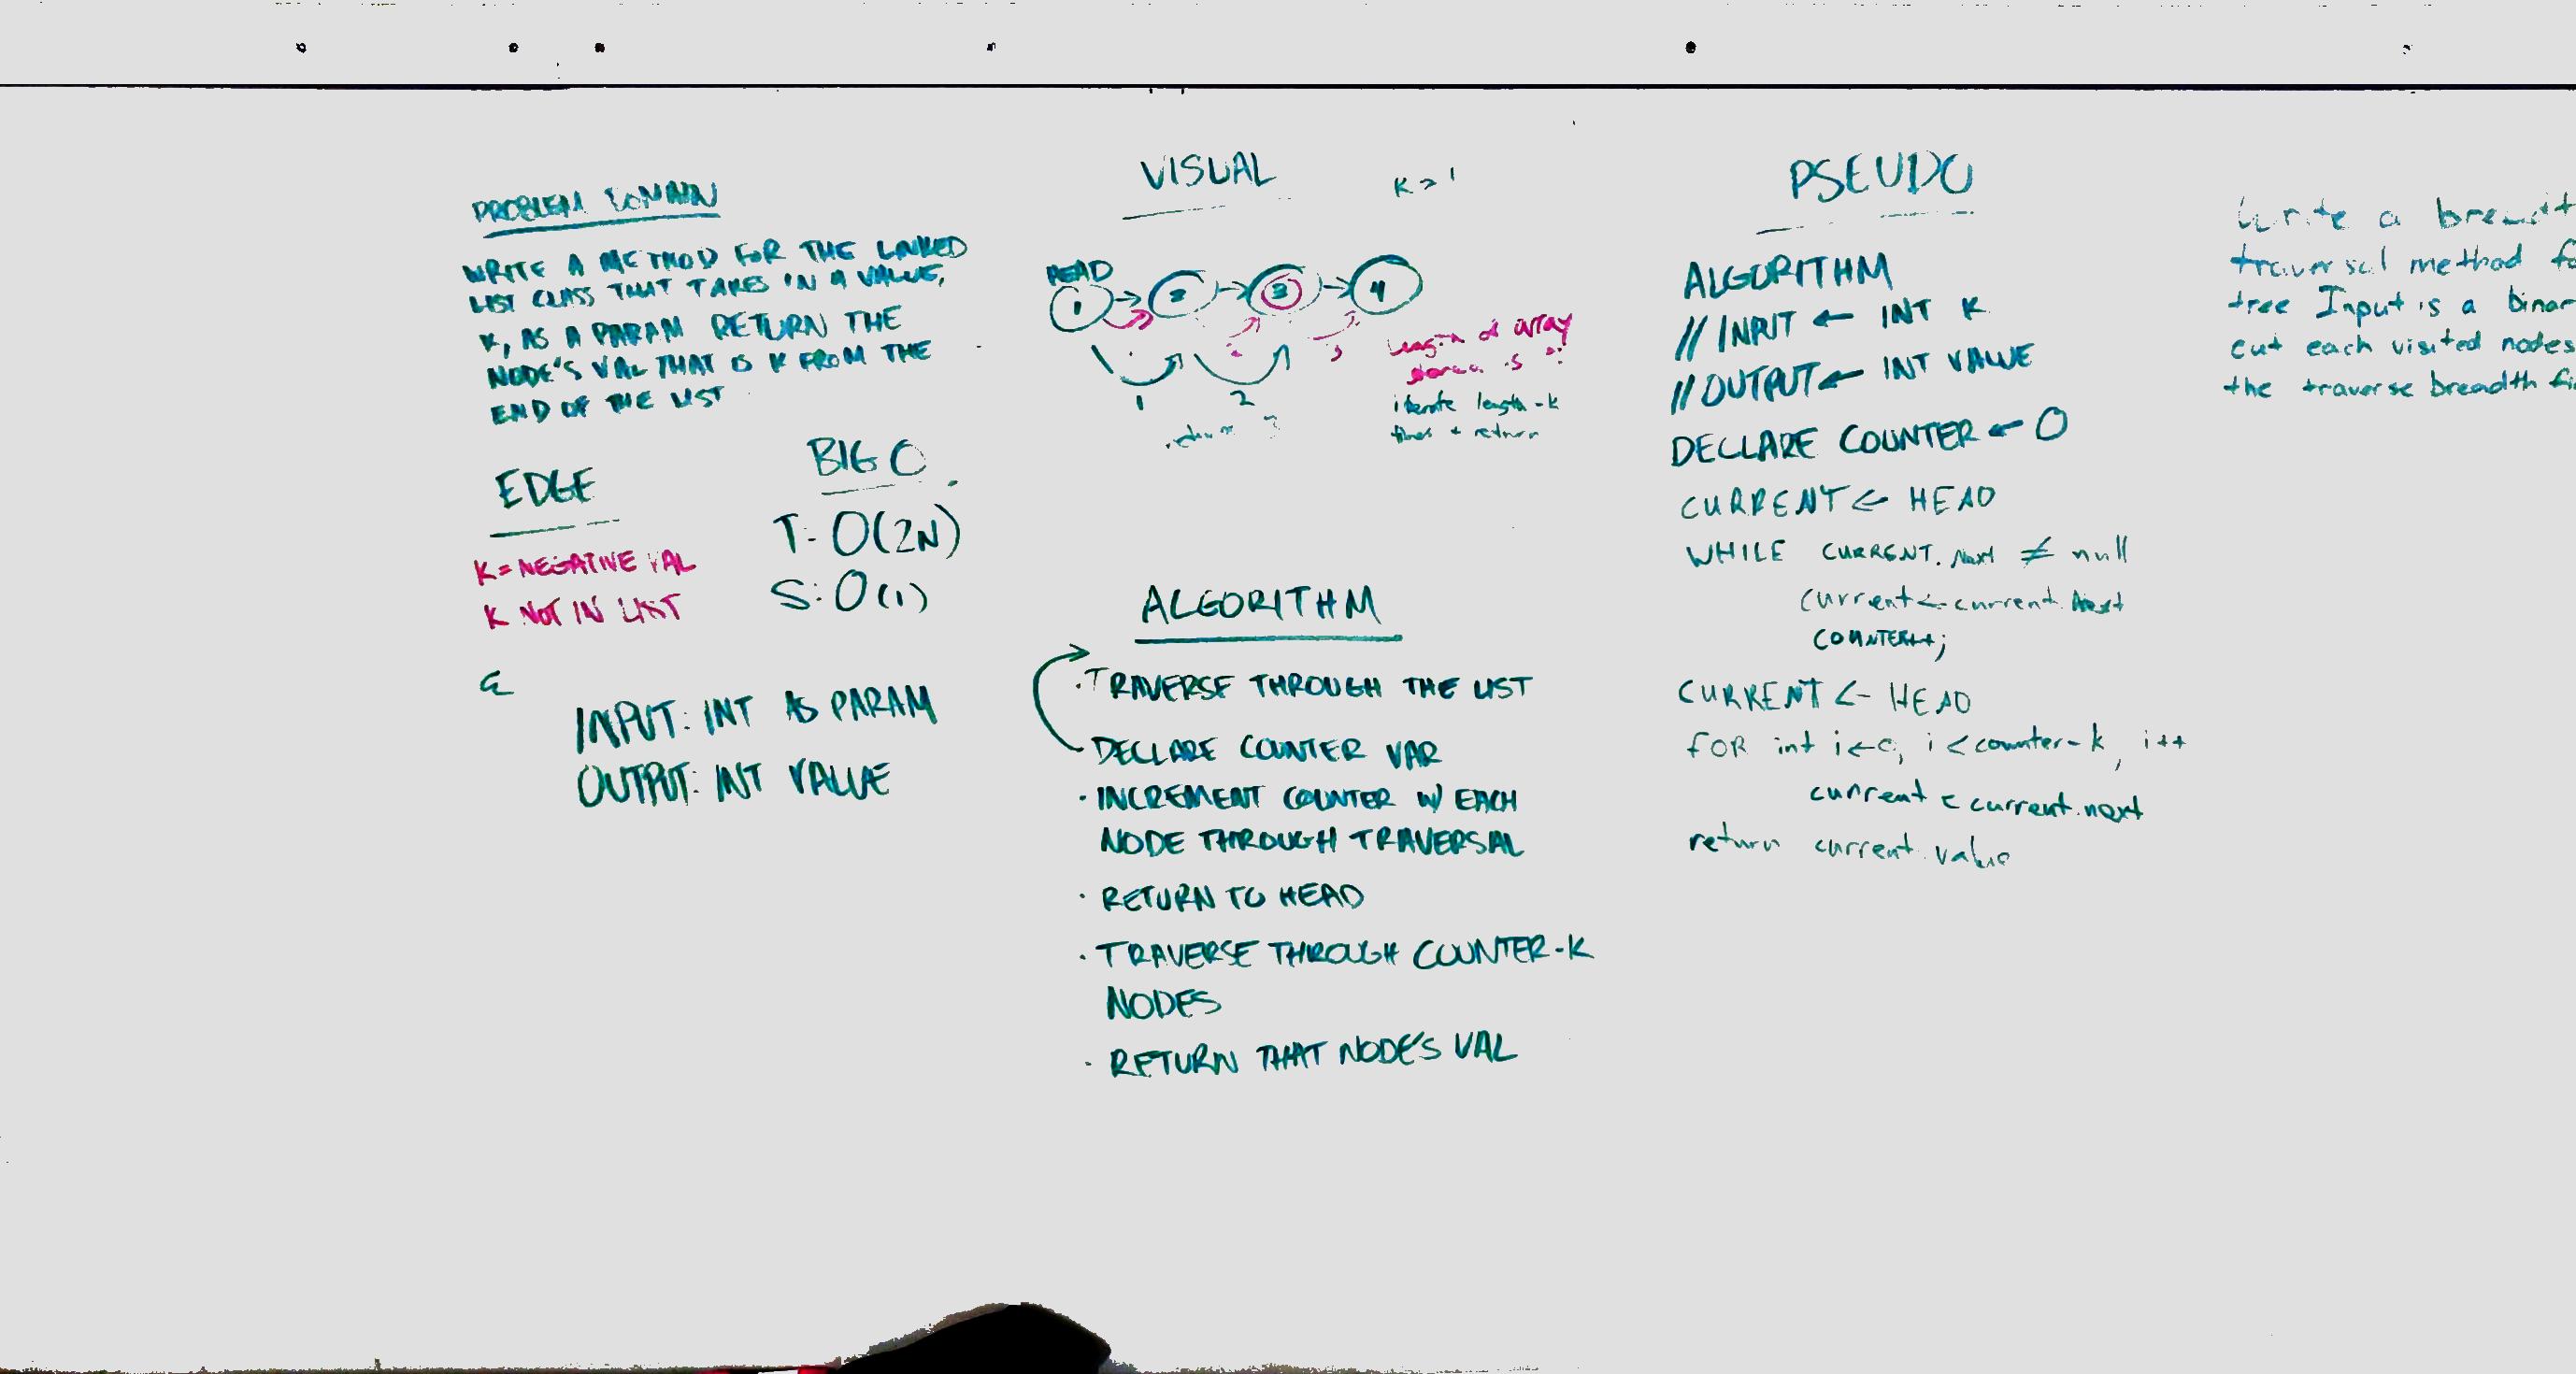 PROBLEM DOMAIN
WRITE A METHOD FOR THE LINKED
LIST CLASS THAT TAKES IN A VALUE,
K, AS A PARAM RETURN THE
NODE'S VAL THAT IS K FROM THE
END OF THE LIST
EDGE
K = NEGATIVE VAL
K NOT IN LIST
BIG O
T: O(2N)
S: O(1)
INPUT: INT AS PARAM
OUTPUT: INT VALUE
VISUAL
HEAD
1 → 2 → 3 → 4
3
1 2
length of array
stored is
iterate length - k
times + return
ALGORITHM
· TRAVERSE THROUGH THE LIST
DECLARE COUNTER VAR
· INCREMENT COUNTER W/ EACH
NODE THROUGH TRAVERSAL
· RETURN TO HEAD
· TRAVERSE THROUGH COUNTER-K
NODES
· RETURN THAT NODE'S VAL
PSEUDO
ALGORITHM
// INPUT ← INT K
// OUTPUT ← INT VALUE
DECLARE COUNTER ← 0
CURRENT ← HEAD
WHILE CURRENT.next ≠ null
current ← current.next
COUNTER++;
CURRENT ← HEAD
FOR int i ← 0, i < counter - k, i++
current ← current.next
return current.value
Write a
traversal method
tree Input is a
out each visited nodes
the traverse breadth